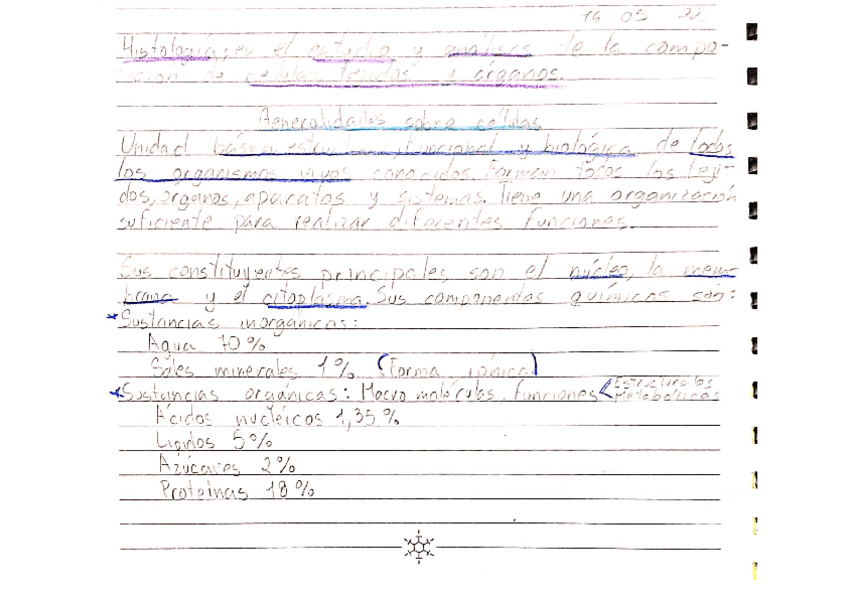 16 05 22
Histología: es el estudio y análisis de la compo-
sición de células, tejidos y órganos.
Generalidades sobre células
Unidad básica estructural, funcional y biológica de todos
los organismos vivos conocidos. Forman todos los teji-
dos, órganos, aparatos y sistemas. Tiene una organización
suficiente para realizar diferentes funciones.
Sus constituyentes principales son el núcleo, la mem-
brana y el citoplasma. Sus componentes químicos son:
*Sustancias inorgánicas:
Agua 70%
Sales minerales 1% (Forma iónica)
*Sustancias orgánicas: Macro moléculas, funciones < Estructurales
Metabólicas
Ácidos nucléicos 1,35%
Lípidos 5%
Azúcares 2%
Proteínas 18%